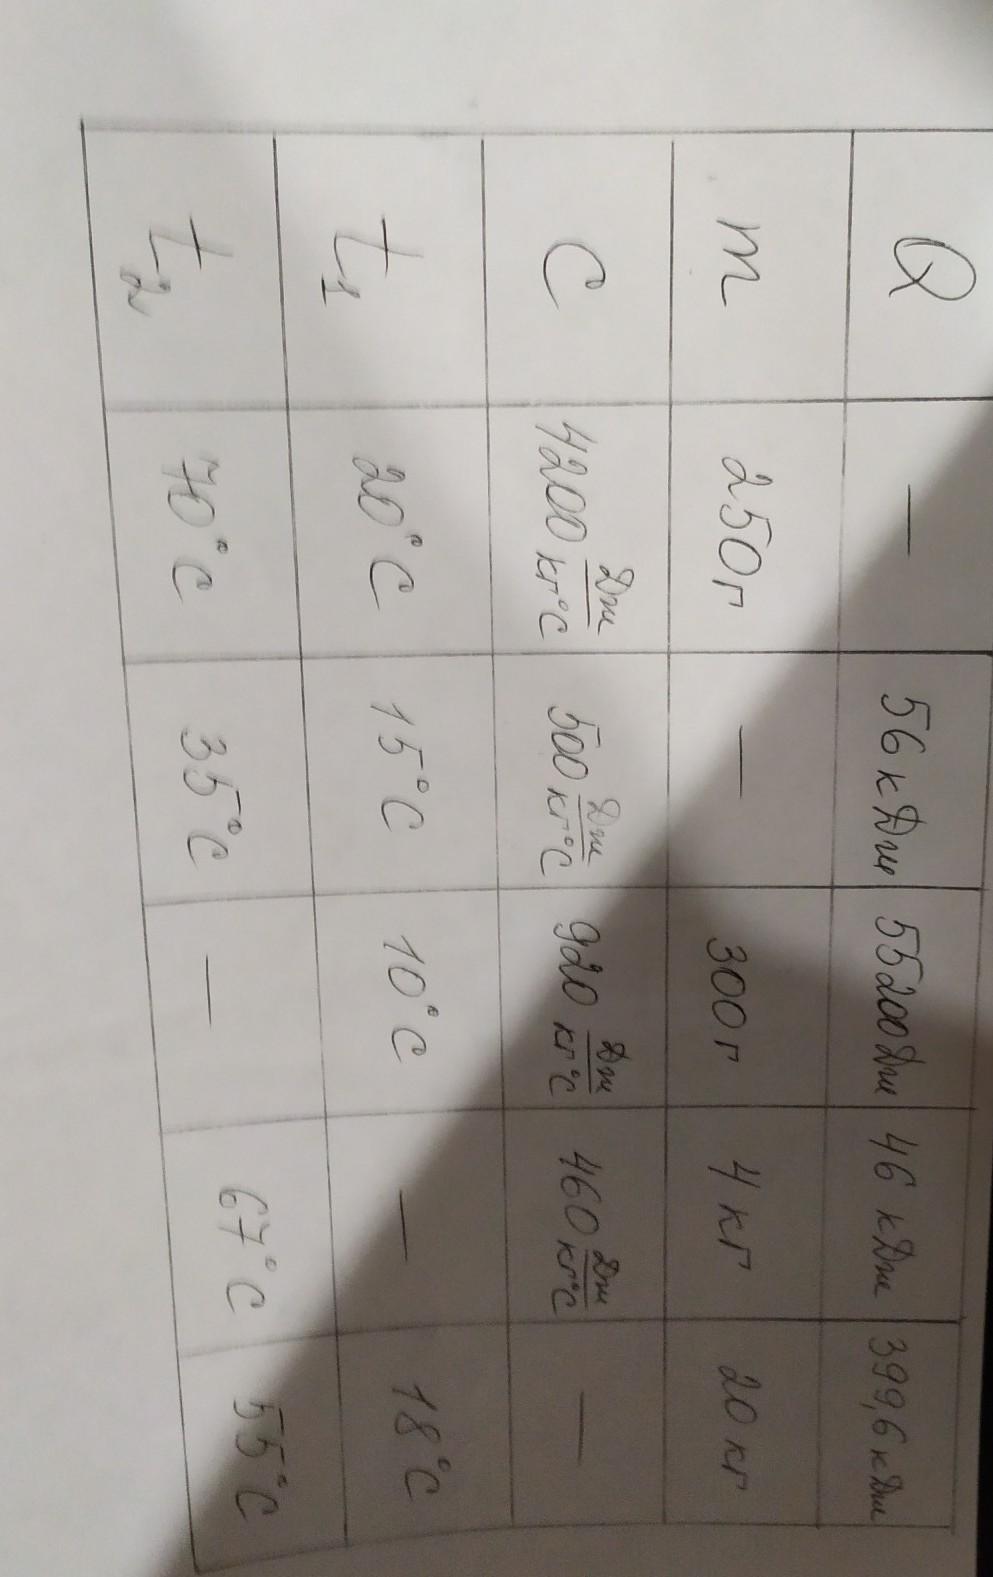 Q — 56 кДж 55200Дж 46 кДж 399,6 кДж
m 250г — 300г 4 кг 20 кг
C 4200 Дж/кг°С 500 Дж/кг°С 920 Дж/кг°С 460 Дж/кг°С —
t₁ 20°C 15°C 10°C — 18°C
t₂ 70°C 35°C — 67°C 55°C